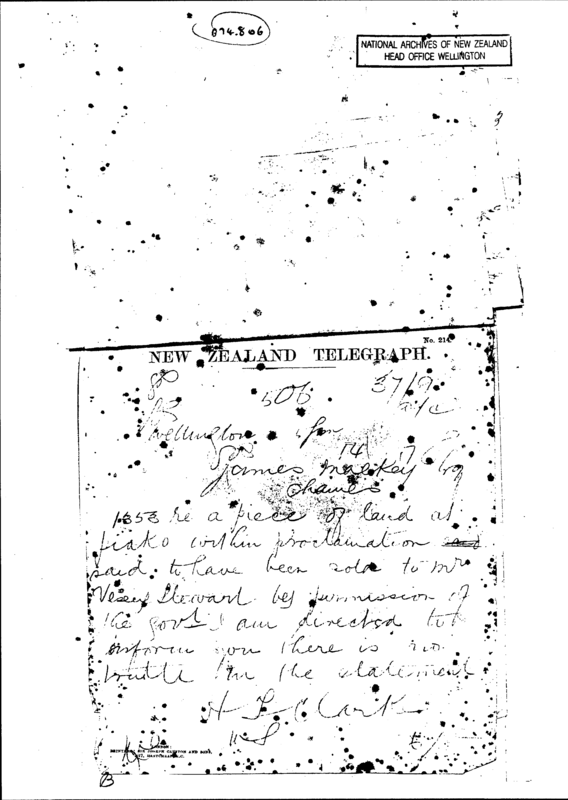 874.806
NATIONAL ARCHIVES OF NEW ZEALAND
HEAD OFFICE WELLINGTON
No. 214.
NEW ZEALAND TELEGRAPH.
506 37/9
a/c
Wellington
14 7
James Mackay Esq
Thames
1353 re a piece of land at
Piako within proclamation
said to have been sold to Mr
Vesey Stewart by permission of
the govt I am directed to
inform you there is no
truth in the statement
H T Clarke
U S
B